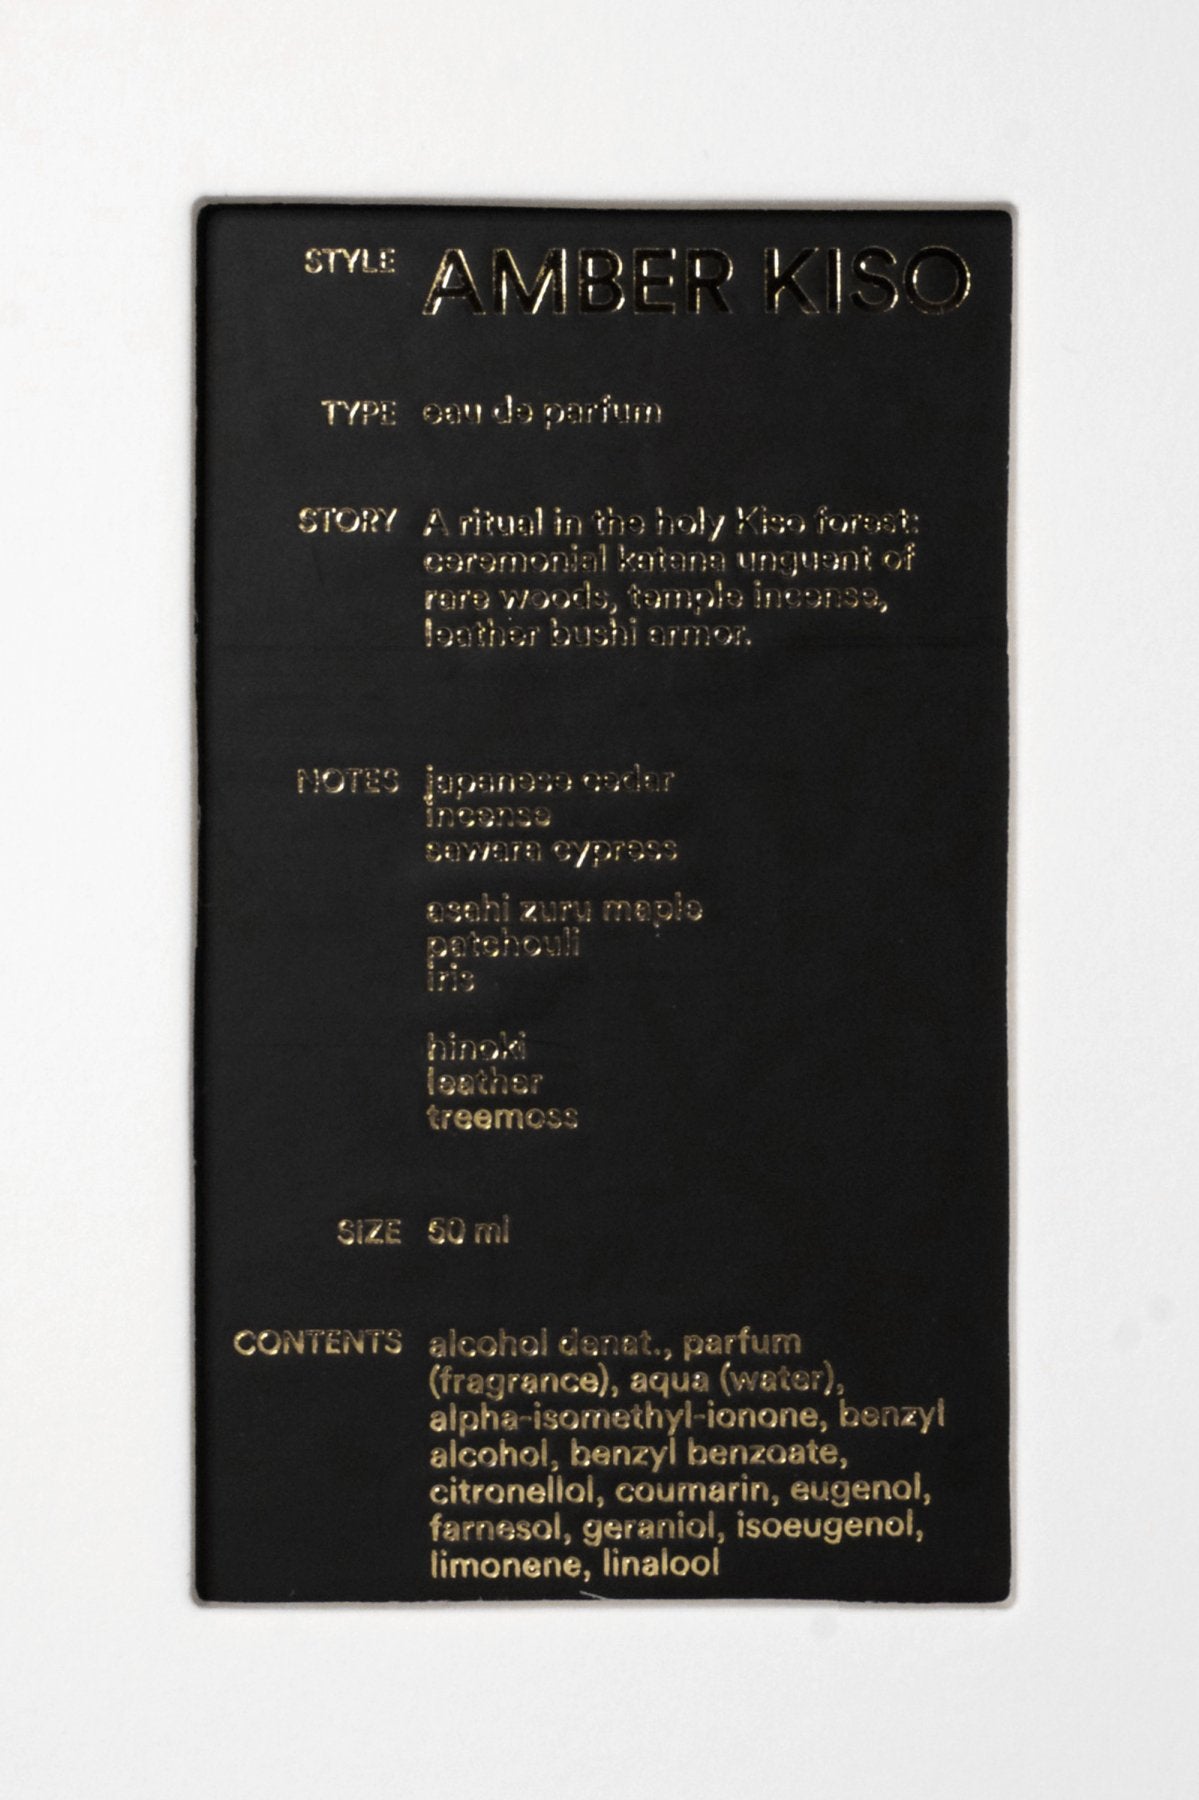 STYLE AMBER KISO
TYPE eau de parfum
STORY A ritual in the holy Kiso forest:
ceremonial katana unguent of
rare woods, temple incense,
leather bushi armor.
NOTES japanese cedar
incense
sawara cypress
asahi zuru maple
patchouli
iris
hinoki
leather
treemoss
SIZE 50 ml
CONTENTS alcohol denat., parfum
(fragrance), aqua (water),
alpha-isomethyl-ionone, benzyl
alcohol, benzyl benzoate,
citronellol, coumarin, eugenol,
farnesol, geraniol, isoeugenol,
limonene, linalool